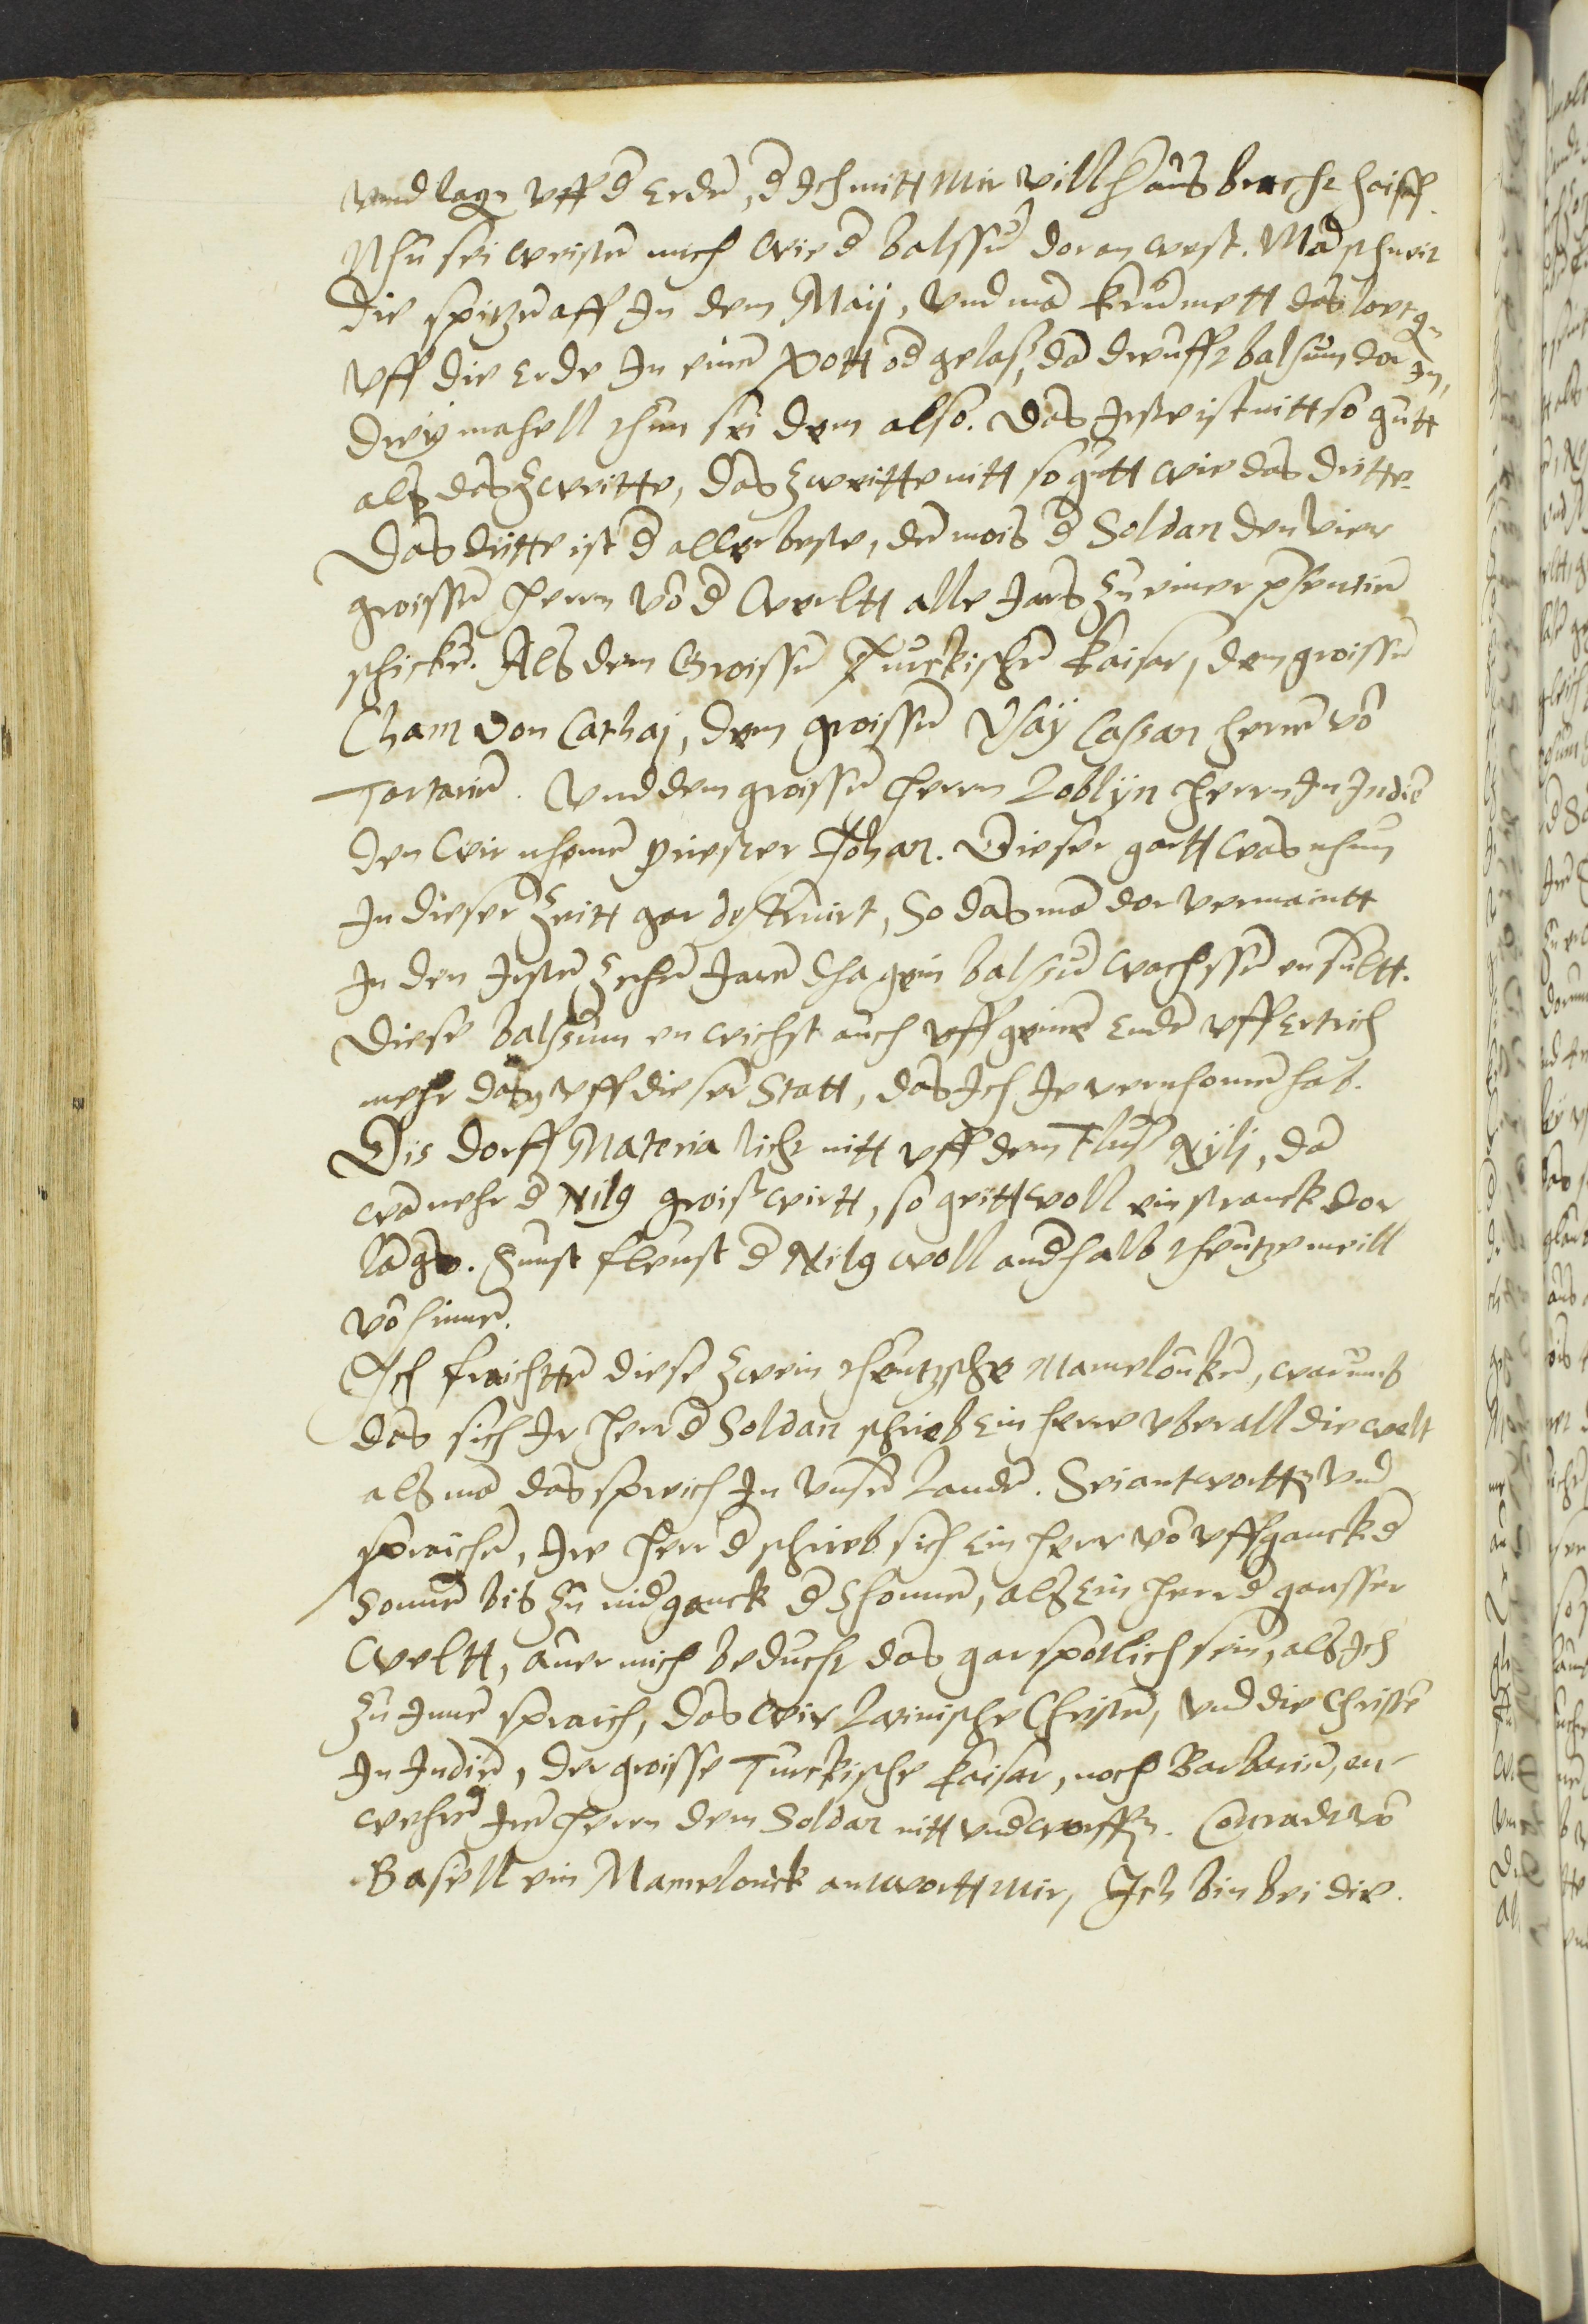 vnd lagen vff d Erden, d Ich mitt mir vill herauß bracht haiff.
Nhu sei weisten mich wie d balssum daran west. Man schneit
die spitzen aff In dem Maij, vnd man krummett das loetgen
vff die Erde In einen Pott od gelaß, dan dreufft balsum dar In,
dreymahell thun sei dem also. Das Irste ist nitt so gutt
als das zweitte, das zweitte nitt so gutt wie das dritte.
Das dritte ist d allerbeste, den mois d Soldan den vier
groissen Herrn von d Weltt alle Jars zu einer presentien
schicken. Als dem Groissen Turckischen Kaisar, dem groissen
Cham von Cathaj, dem groissen Vsaÿ Cassan herren von
Tartarien. Vnd dem groissen Herrn Loblÿn Herrn In Indien
den wir nhomen Priester Johan. Dieser gartt was nhun
In dieser zeitt gar destruirt, So das man dar vermaintt
In den Irsten zehen Jaren Dha gein balsum wachssen ensultt.
Diese balssum en wichst auch vff geinen Enden vff Ertrich
mehr dan vff dieser Statt, das Ich Ie vernhomen hab.
Dis dorff Materia licht nitt vff dem Fluß Nÿlj, dan
wannehr d Nilg groiß wirtt, so geitt woll ein stranck dar
langs. Sunst fleust d Nilg woll andhalb theutze meill
von hinnen.
Ich fraichten diese zwein theutzsche Mamelouken, warumb
das sich Ir Herr d Soldan schrieb Ein herre vber all die welt
als man das sprich In vnsen Landen. Sei antwortten vnd
spraichen, Ire Herr d schrieb sich Ein herr von vffganck d
Sonnen bis zu nidganck d Shonnen, als Ein Herr d gansser
Weltt, auer mich beducht das gar spotlich sein, als Ich
zu Innen spraich, das wir Latinische Christen, vnd die Christen
In Indien, der groisse Turckische Kaisar, noch Barbarien, en-
wehren Iren Herrn dem Soldan nitt vnderworffen. Conradt von
Basell ein Mamelouck antwortt mir, Ich bin bei die.